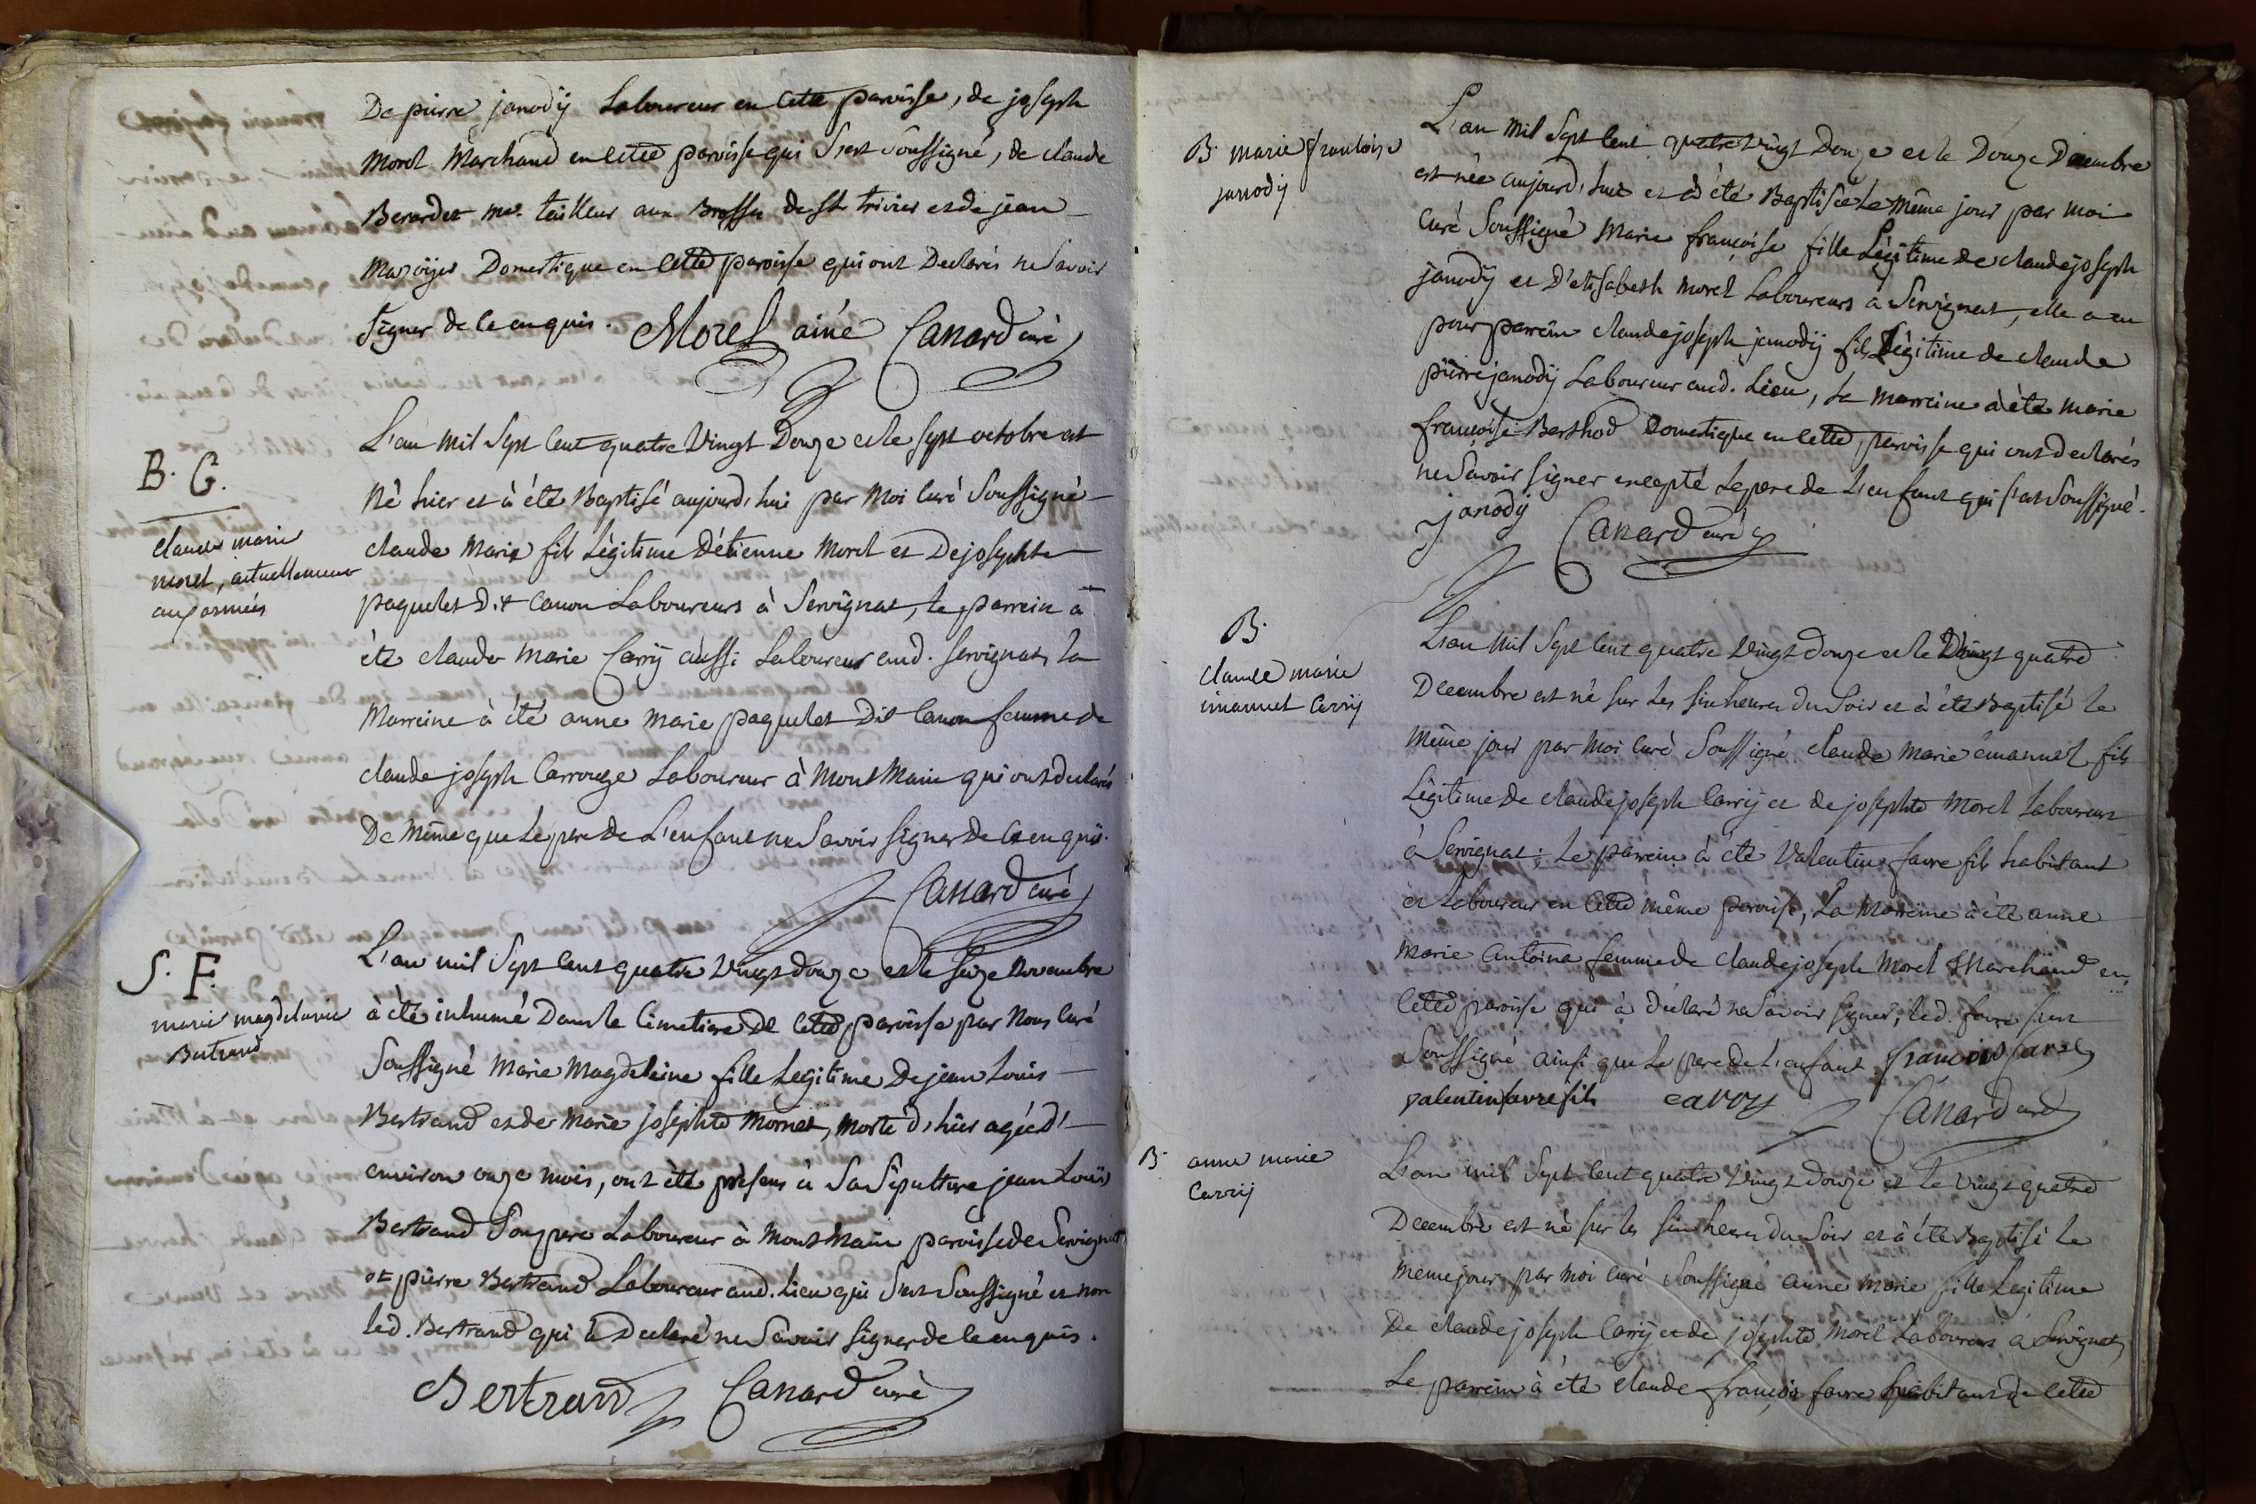 De pierre janodÿ Laboureur en Cette paroisse, de joseph
Morel Marchand en Cette paroisse qui s'est soussigné, de claude
Berardet me. tailleur aux Brosses de St trivier et de jean
Mazoÿer Domestique en Cette paroisse qui ont Declarés ne Savoir
signer de Ce enquis. Morel ainé Canard curé
B. G.
claude marie
morel, actuellement
aux armées
L'an Mil Sept Cent quatre Vingt Douze et le sept octobre est
Né hier et à été Baptisé aujourd'hui par Moi Curé Soussigné
claude Marie fils Légitime D'étienne Morel et De josephte
paquelet Dit Canon Laboureurs à Servignat, le parrein à
été claude Marie Carrÿ aussi Laboureur aud. servignat, la
Marreine à été anne Marie paquelet Dit Canon femme de
claude joseph Carrouge Laboureur à Mont Main qui ont declarés
De Même que Le pere De L'enfant ne Savoir signer de Ce enquis.
Canard curé
S. F.
marie magdelaine
Bertrand
L'an mil Sept Cent quatre Vingt douze et le seize Novembre
à été inhumé Dans le Cimetiere de Cette paroisse par Nous Curé
Soussigné Marie Magdeleine fille Legitime De jean Louis
Bertrand et de Marie josephte Mornet, Morte d'hier agée d'
environ onze mois, ont été présens à Sa Sépulture jean Louis
Bertrand Son pere Laboureur à Mont Main paroisse de Servignat
et pierre Bertrand Laboureur aud. Lieu qui s'est Soussigné et non
led. Bertrand qui à Declaré ne Savoir signer de Ce enquis.
Bertrand Canard curé
B. marie françoise
janodÿ
L'an Mil Sept Cent quatre Vingt Douze et le Douze Decembre
est née aujourd'hui et à été Baptisée Le même jour par moi
Curé Soussigné Marie françoise fille Légitime de claude joseph
janodÿ et D'elisabeth Morel Laboureurs à Servignat, elle a eu
pour parrein claude joseph janodÿ fils Légitime de claude
pierre janodÿ Laboureur aud. Lieu, la Marreine à été Marie
françoise Berthod Domestique en Cette paroisse qui ont declarés
ne Savoir signer excepté Le pere de L'enfant qui s'est Soussigné.
janodÿ Canard curé
B.
claude marie
emanuel Carrÿ
L'an Mil Sept Cent quatre Vingt douze et le Vingt quatre
Decembre est né sur les six heures du Soir et à été Baptisé Le
Même jour par Moi Curé Soussigné claude Marie émanuel fils
Légitime de claude joseph Carrÿ et de josephte Morel Laboureurs
à Servignat; Le parrein à été Valentin favre fils habitant
et Laboureur en Cette même paroisse, La Marreine à été anne
Marie Antoine femme de claude joseph Morel Marchand en
Cette paroisse qui à déclaré ne Savoir signer, led. favre s'est
Soussigné ainsi que Le pere de L'enfant françois favre
valentin favre fils caroy Canard curé
B. anne marie
Carrÿ
L'an mil Sept Cent quatre Vingt douze et le Vingt quatre
Decembre est né sur les six heures du Soir et à été Baptisé Le
même jour par moi Curé Soussigné anne Marie fille Legitime
De claude joseph Carrÿ et de josephte Morel Laboureurs à Servignat,
Le parrein à été claude françois favre habitant de Cette